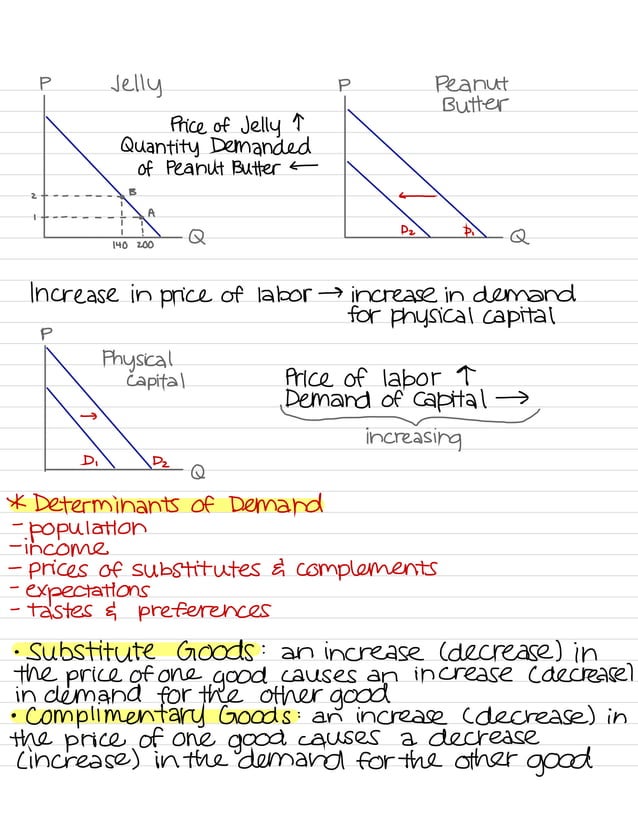 P
Jelly
Price of Jelly ↑
Quantity Demanded
of Peanut Butter ←
2
B
1
A
140 200
Q
P
Peanut
Butter
D₂
D₁
Q
Increase in price of labor → increase in demand
for physical capital
P
Physical
Capital
→
D₁
D₂
Q
Price of labor ↑
Demand of capital →
increasing
* Determinants of Demand
- population
- income
- prices of substitutes & complements
- expectations
- tastes & preferences
• Substitute Goods: an increase (decrease) in
the price of one good causes an increase (decrease)
in demand for the other good
• Complimentary Goods: an increase (decrease) in
the price of one good causes a decrease
(increase) in the demand for the other good